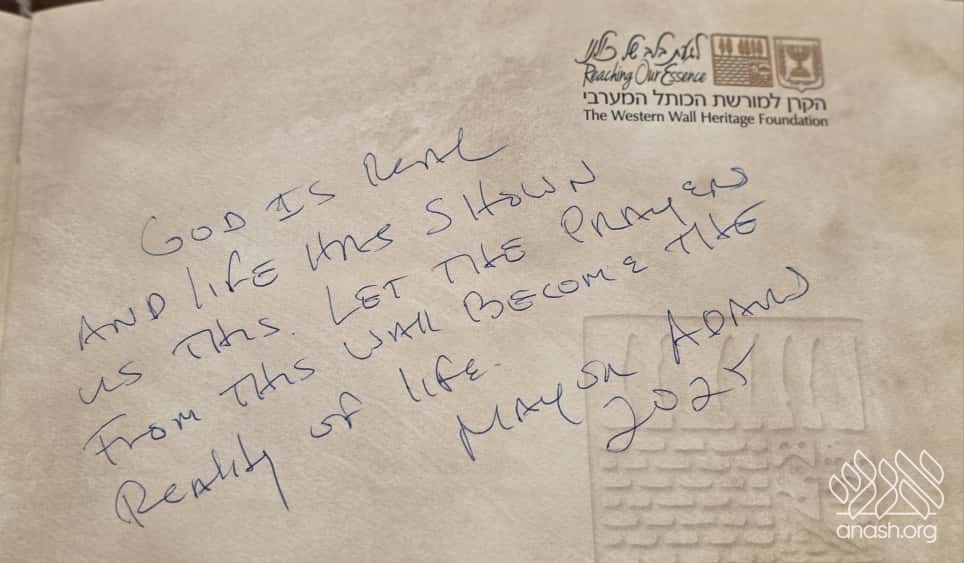 לגעת בלב של כולנו
Reaching Our Essence
הקרן למורשת הכותל המערבי
The Western Wall Heritage Foundation
GOD IS REAL
AND LIFE HAS SHOWN
US THIS. LET THE PRAYER
FROM THIS WALL BECOME THE
REALITY OF LIFE.
MAYOR ADAMS
2025
אנש
anash.org